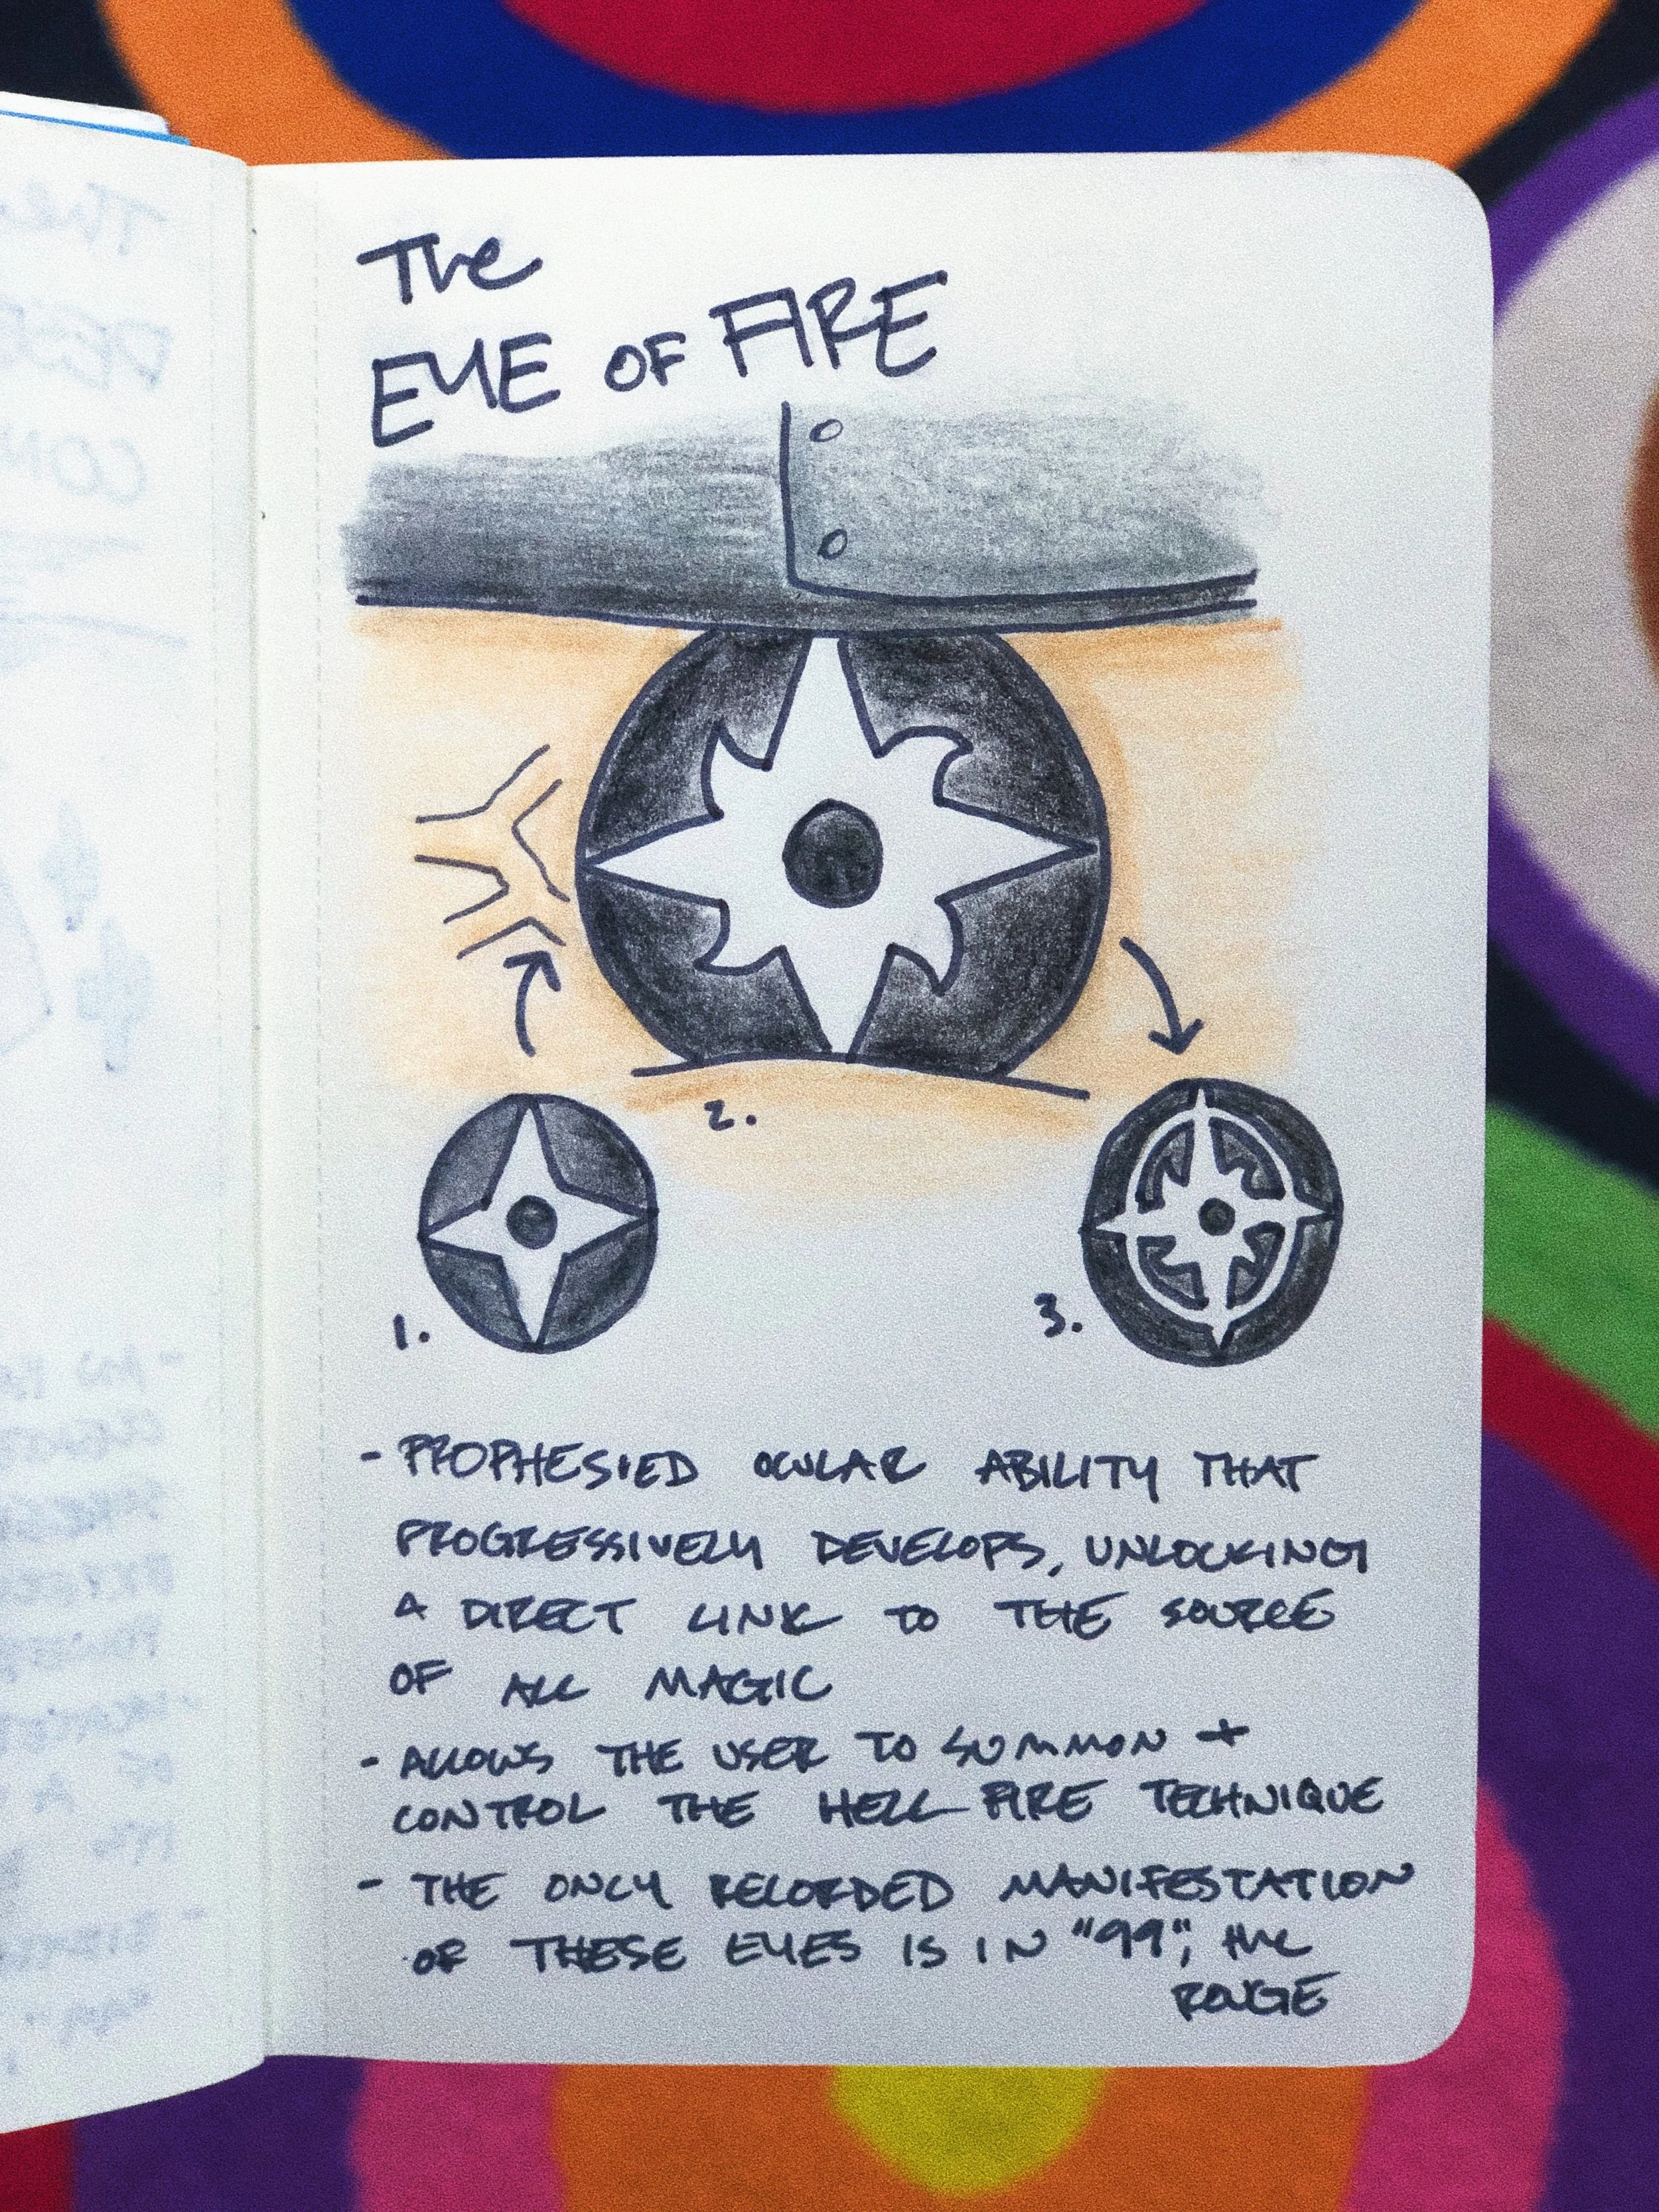 The
EYE OF FIRE
2.
1.
3.
- PROPHESIED OCULAR ABILITY THAT
PROGRESSIVELY DEVELOPS, UNLOCKING
A DIRECT LINK TO THE SOURCE
OF ALL MAGIC
- ALLOWS THE USER TO SUMMON +
CONTROL THE HELL FIRE TECHNIQUE
- THE ONLY RECORDED MANIFESTATION
OF THESE EYES IS IN "99", the
ROUGE